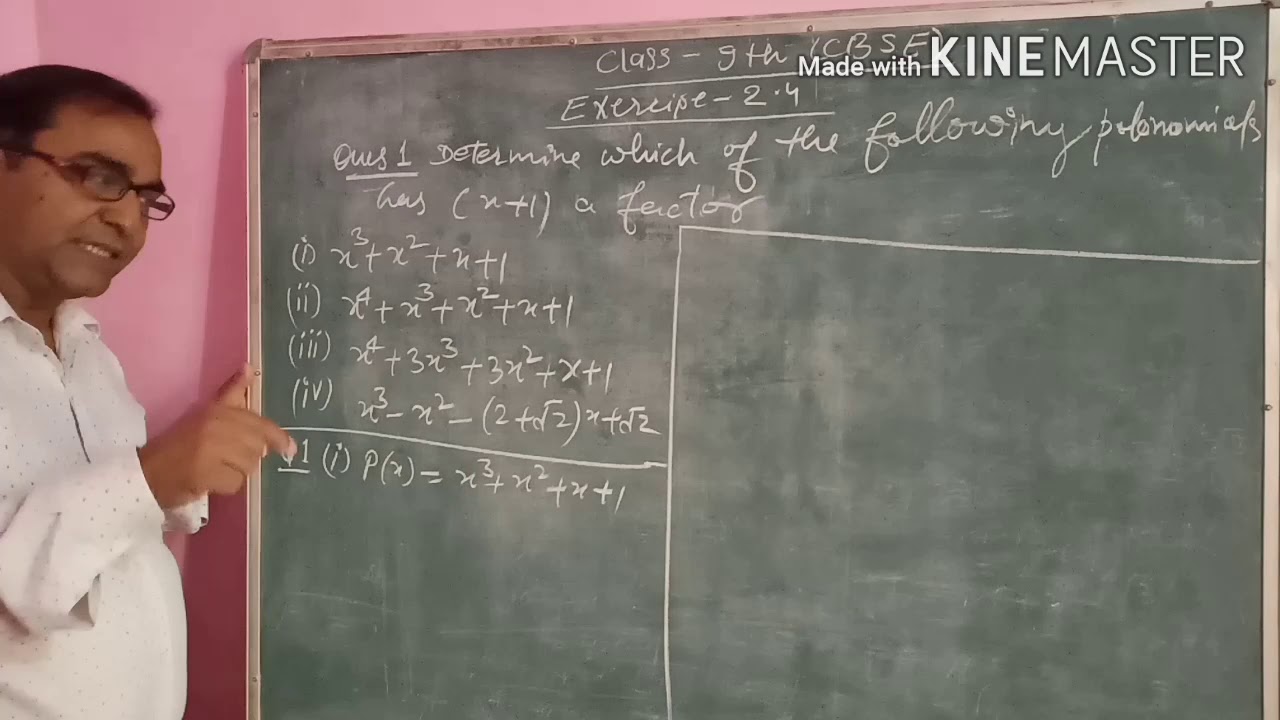 Class - 9th (CBSE)
Made with KINEMASTER
Exercise - 2.4
Ques 1 Determine which of the following polonomials
has (x+1) a factor
(i) x³+x²+x+1
(ii) x⁴+x³+x²+x+1
(iii) x⁴+3x³+3x²+x+1
(iv) x³-x²-(2+√2)x+√2
1 (i) P(x)=x³+x²+x+1